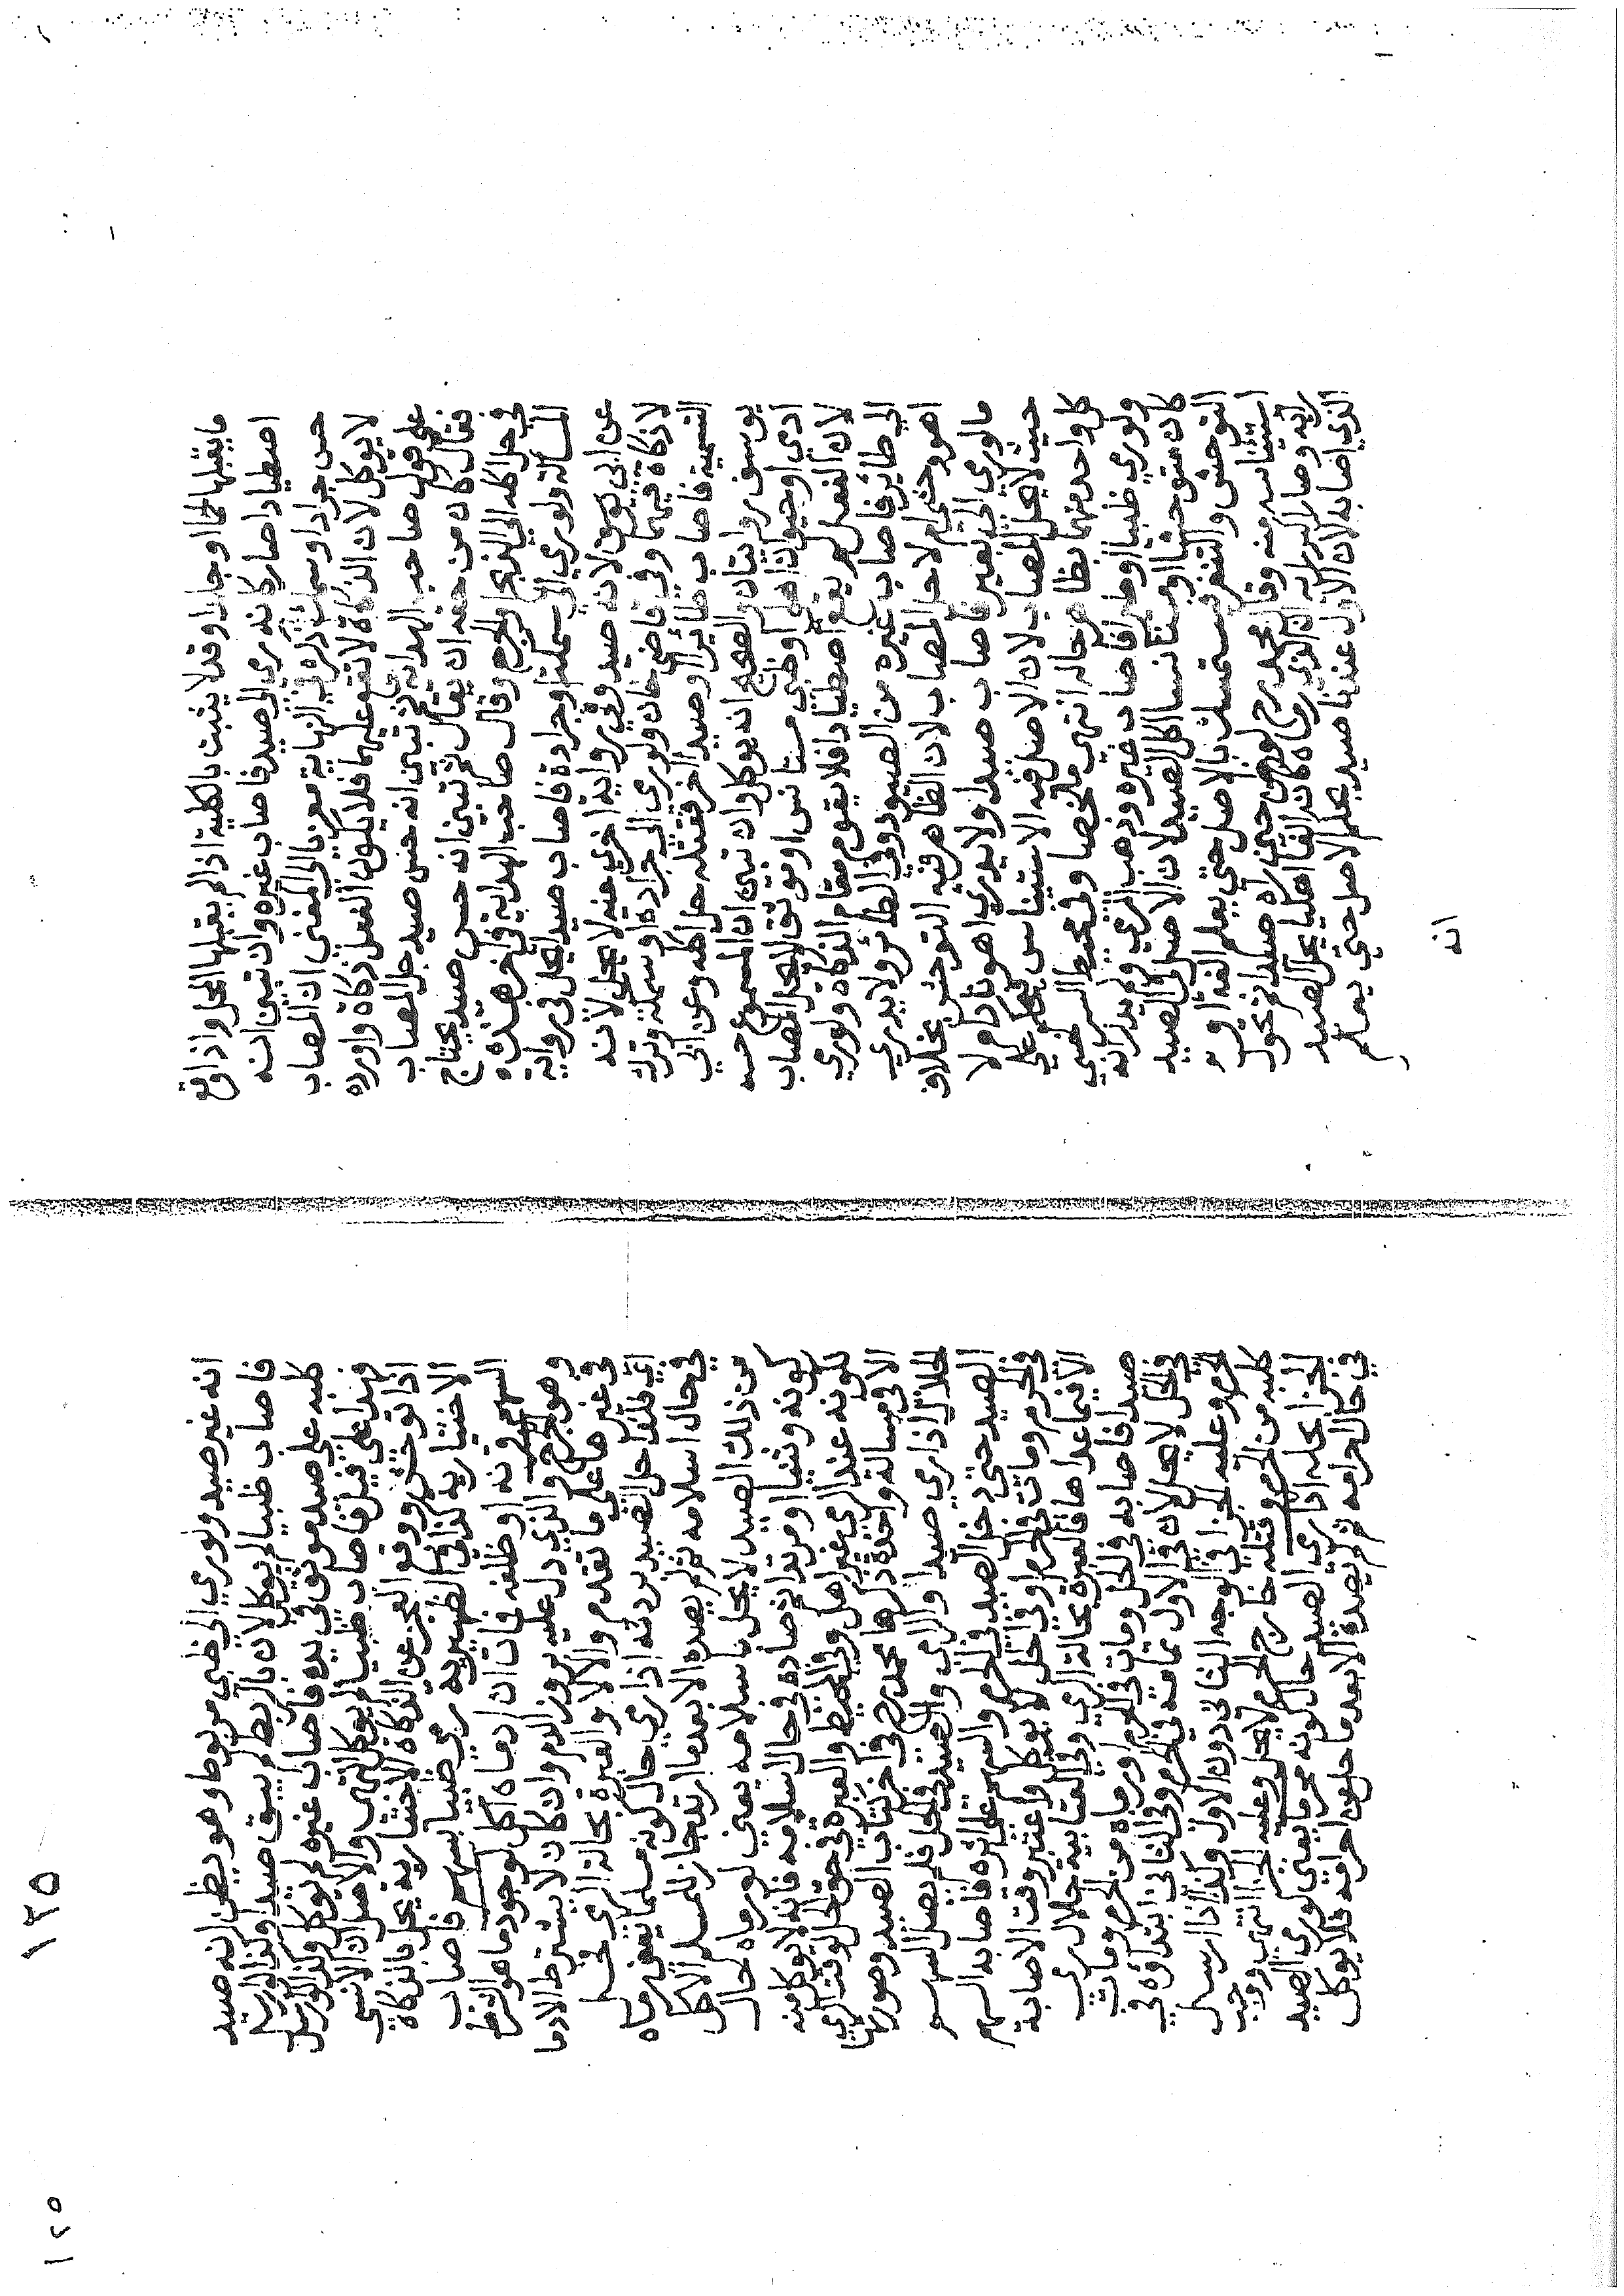 ما يقبلها لحما او جلدا وقد لا يثبت بالكلية اذا لم يقبلها المحل واذا وقع
اصطيادا صار كانه رمي الى صيد فاصاب غيره وان تبين انه
حس جراد او سمك ذكر في النهاية معزيا الى المغني ان المصاب
لا يوكل لان الذكاة لا تقع عليهما فلا يكون الفعل ذكاة واورده
على قول صاحب الهداية ثم تبين انه حس صيد حل المصاب
فقال كان من حقه ان يقال ثم تبين انه حس صيد يحتاج
في حل اكله الى الذبح او الجرح وقال صاحب الهداية في اخر هذه
المسألة ولو رمي الى سمكة او جرادة فاصاب صيدا يحل في رواية
عن ابي يوسف لانه صيد وفي رواية اخري عنه لا يحل لانه
لا ذكاة فيهما وفي قاضي خان ولو رمي الى جرادة او سمكة وترك
التسمية فاصاب طائرا او صيدا اخر فقتله حل اكله وعن ابي
يوسف روايتان والصحيح انه يوكل وان تبين ان المسموع حسه
ادمي او حيوان اهلي او ظبي مستانس او موثق لا يحل المصاب
لان الفعل لم يقع اصطيادا فلا يقوم مقام الذكاة ولو رمي
الي طائر فاصاب غيره من الصيود وفر الطائر ولا يدري
اهو وحشي ام لا حل المصاب لان الظاهر فيه التوحش بخلاف
ما لو رمي الى بعير فاصاب صيدا ولا يدري اهو ناد ام لا
حيث لا يحل المصاب لان الاصل فيه الاستيناس فيحكم علي
كل واحد منهما بظاهر حاله انتهي ملخصا وفي محيط السرخسي
ولو رمي ظبيا او طيرا فاصاب غيره وذهب المرمي ولم يدر انه
كان متوحشا او مستانسا اكل الصيد لان الاصل في الصيد
التوحش والتنفر فيتمسك بالاصل حتي يعلم
استيناسه منه وقال محمد رح لو رمي حتي رآه صيدا ثم تحول
رآيه وصار اكبر رايه ان الذي رماه كان اهليا يحل الصيد
الذي اصابه لان الاول عندنا صيد بحكم الاصل حتي يعلم
انه
١٢٥
١٢٥
انه غير صيد ولو رمي الى ظبي مربوط وهو يظن انه صيد
فاصاب ظبيا لم يوكل لان بالربط لم يبق صيدا وكذا لو ارسل
كلبه على صيد موثق في يده فاصاب غيره لم يوكل وكذا لو ارسل
فهدا علي فيل فاصاب ظبيا لم يوكل انتهي والاصل ان الانسي
اذا توحش ووقع العجز عن الذكاة الاختيارية يحل بالذكاة
الاضطرارية كذا في الظهيرية رمي ظبيا بسهم فاصاب
السهم قرنه او ظلفه فمات ان ادماه اكل لوجود ما هو الشرط
وهو الجرح والذي دل عليه بروز الدم وان كان لا يشترط الادما
في غير ها علي ما تقدم والا لا والعبرة بحالة الرمي فحل
الصيد بردته اذا رمي حال كونه مسلما يعني رماه
في حال اسلامه ثم لم يصبه الا بعد ما ارتد جاز للمسلم الاكل
من ذلك الصيد لا يحل باسلامه يعني لو رماه حال
كونه وثنيا او مرتدا ثم صاده في حال اسلامه فانه لا يوكل منه
لكونه عند الرمي غير اهل وفي المحيط والعبرة في حق الحل لوقت الرمي
الا في مسالة واحدة ذكرها محمد رح في اخر كتاب الصيد وصورتها
الحلال اذا رمي صيدا والرمي والصيد في الحل فلم يصل السهم
الصيد حتي دخل الصيد في الحرم والسهم علي اثره فاصابه السهم
في الحرم ومات في الحرم او في الحل لا يوكل واعتبر وقت الاصابة
الا فيما عداها فالعبرة بحالة الرمي وفي العتابية حلال رمي
صيدا فاصابه في الحل ومات في الحرم او رماه من الحرم ومات
في الحل لا يحل لان في الاول تمامه في الحرم وفي الثاني ابتداؤه في
الحرم وعليه الجزا في الوجه الثاني دون الاول وكذا اذا ارسل
كلبه من الحرم وقتله خارج الحرم لا يحل وعليه الجزا انتهي ووجب
الجزا بحله اذا رمي الصيد حال كونه محرما يعني لو رمي الصيد
في حال احرامه ثم لم يصبه الا بعد ما حل من احرامه فلا يوكل